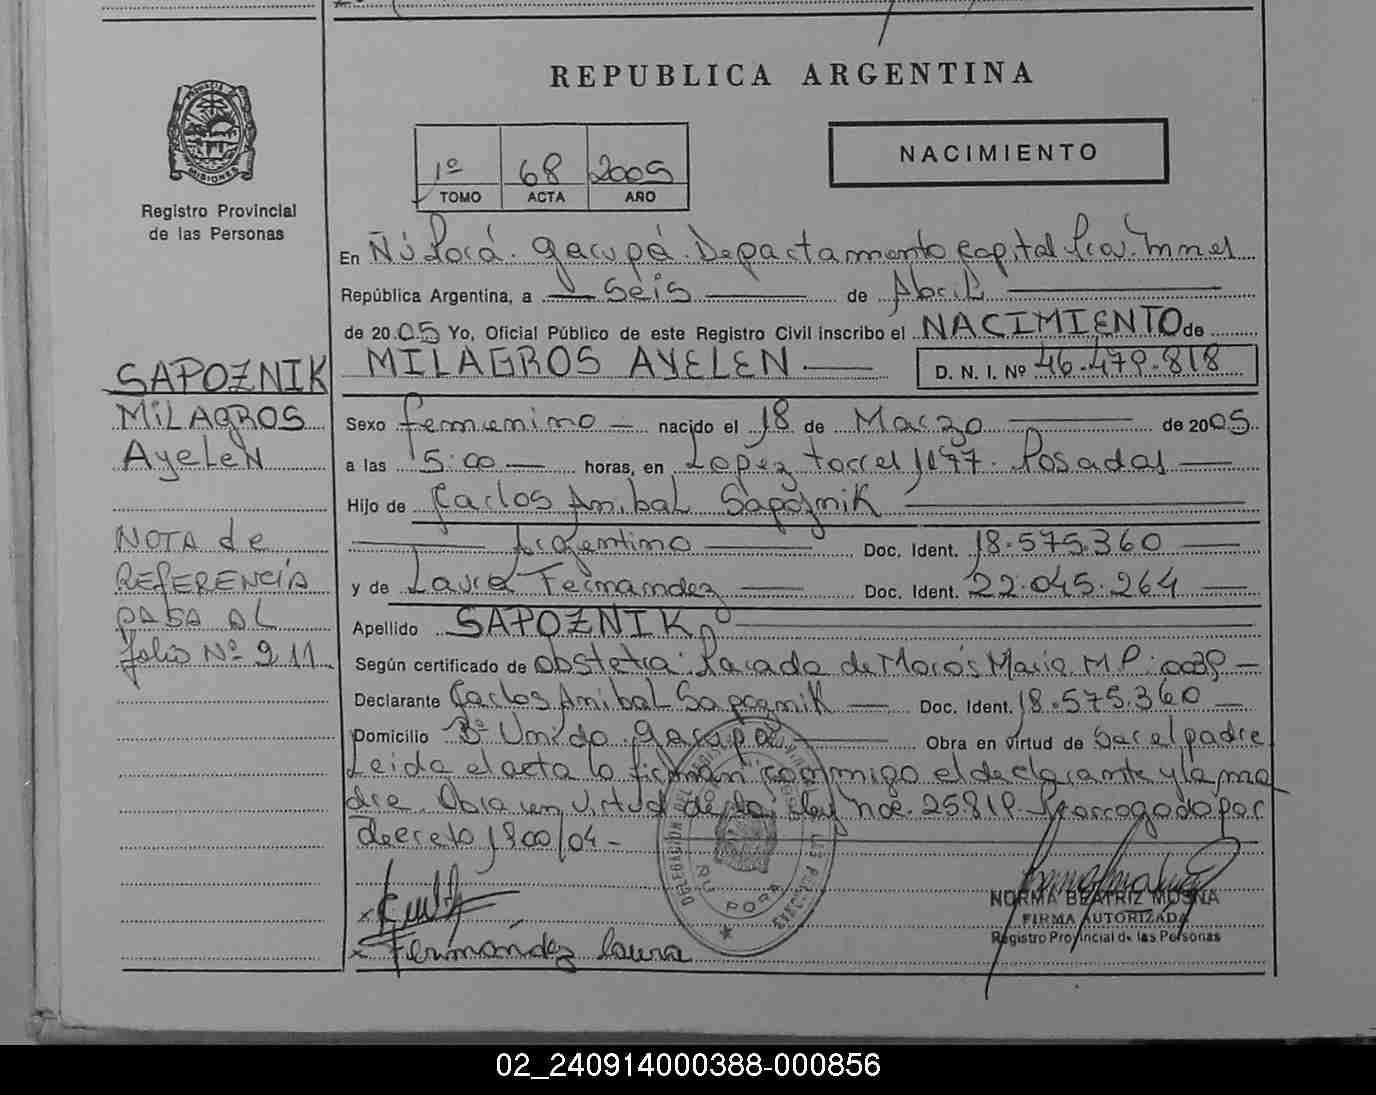 REPUBLICA ARGENTINA
NACIMIENTO
1º 68 2005
TOMO ACTA AÑO
PROVINCIA DE MISIONES
Registro Provincial
de las Personas
En Ñú Porá. Garupá. Departamento Capital Prov.
República Argentina, a Seis de Abril
de 2005 Yo, Oficial Público de este Registro Civil inscribo el NACIMIENTO de
MILAGROS AYELEN D. N. I. Nº 46.479.818
Sexo femenino nacido el 18 de Marzo de 2005
a las 15:00 horas, en Lopez torres 1177. Posadas
Hijo de Carlos Anibal Sapoznik
Argentino Doc. Ident. 18.575.360
y de Laura Fernandez Doc. Ident. 22.045.264
Apellido SAPOZNIK
Según certificado de obstetra: Parada de Marcos Maria M.P:
Declarante Carlos Anibal Sapoznik Doc. Ident. 18.575.360
Domicilio Bº Unido Garupá Obra en virtud de Ser el padre
Leida el acta lo firman conmigo el declarante y la ma
dre. Obra en virtud de la ley nce. 25819. Prorrogado por
decreto 1900/04-
SAPOZNIK
MiLAGROS
AyeLeN
NOTA de
REFERENCIA
PASA AL
folio Nº 911
x
x Fernández Laura
ÑU PORA
NORMA BEATRIZ MOSNA
FIRMA AUTORIZADA
Registro Provincial de las Personas
02_240914000388-000856